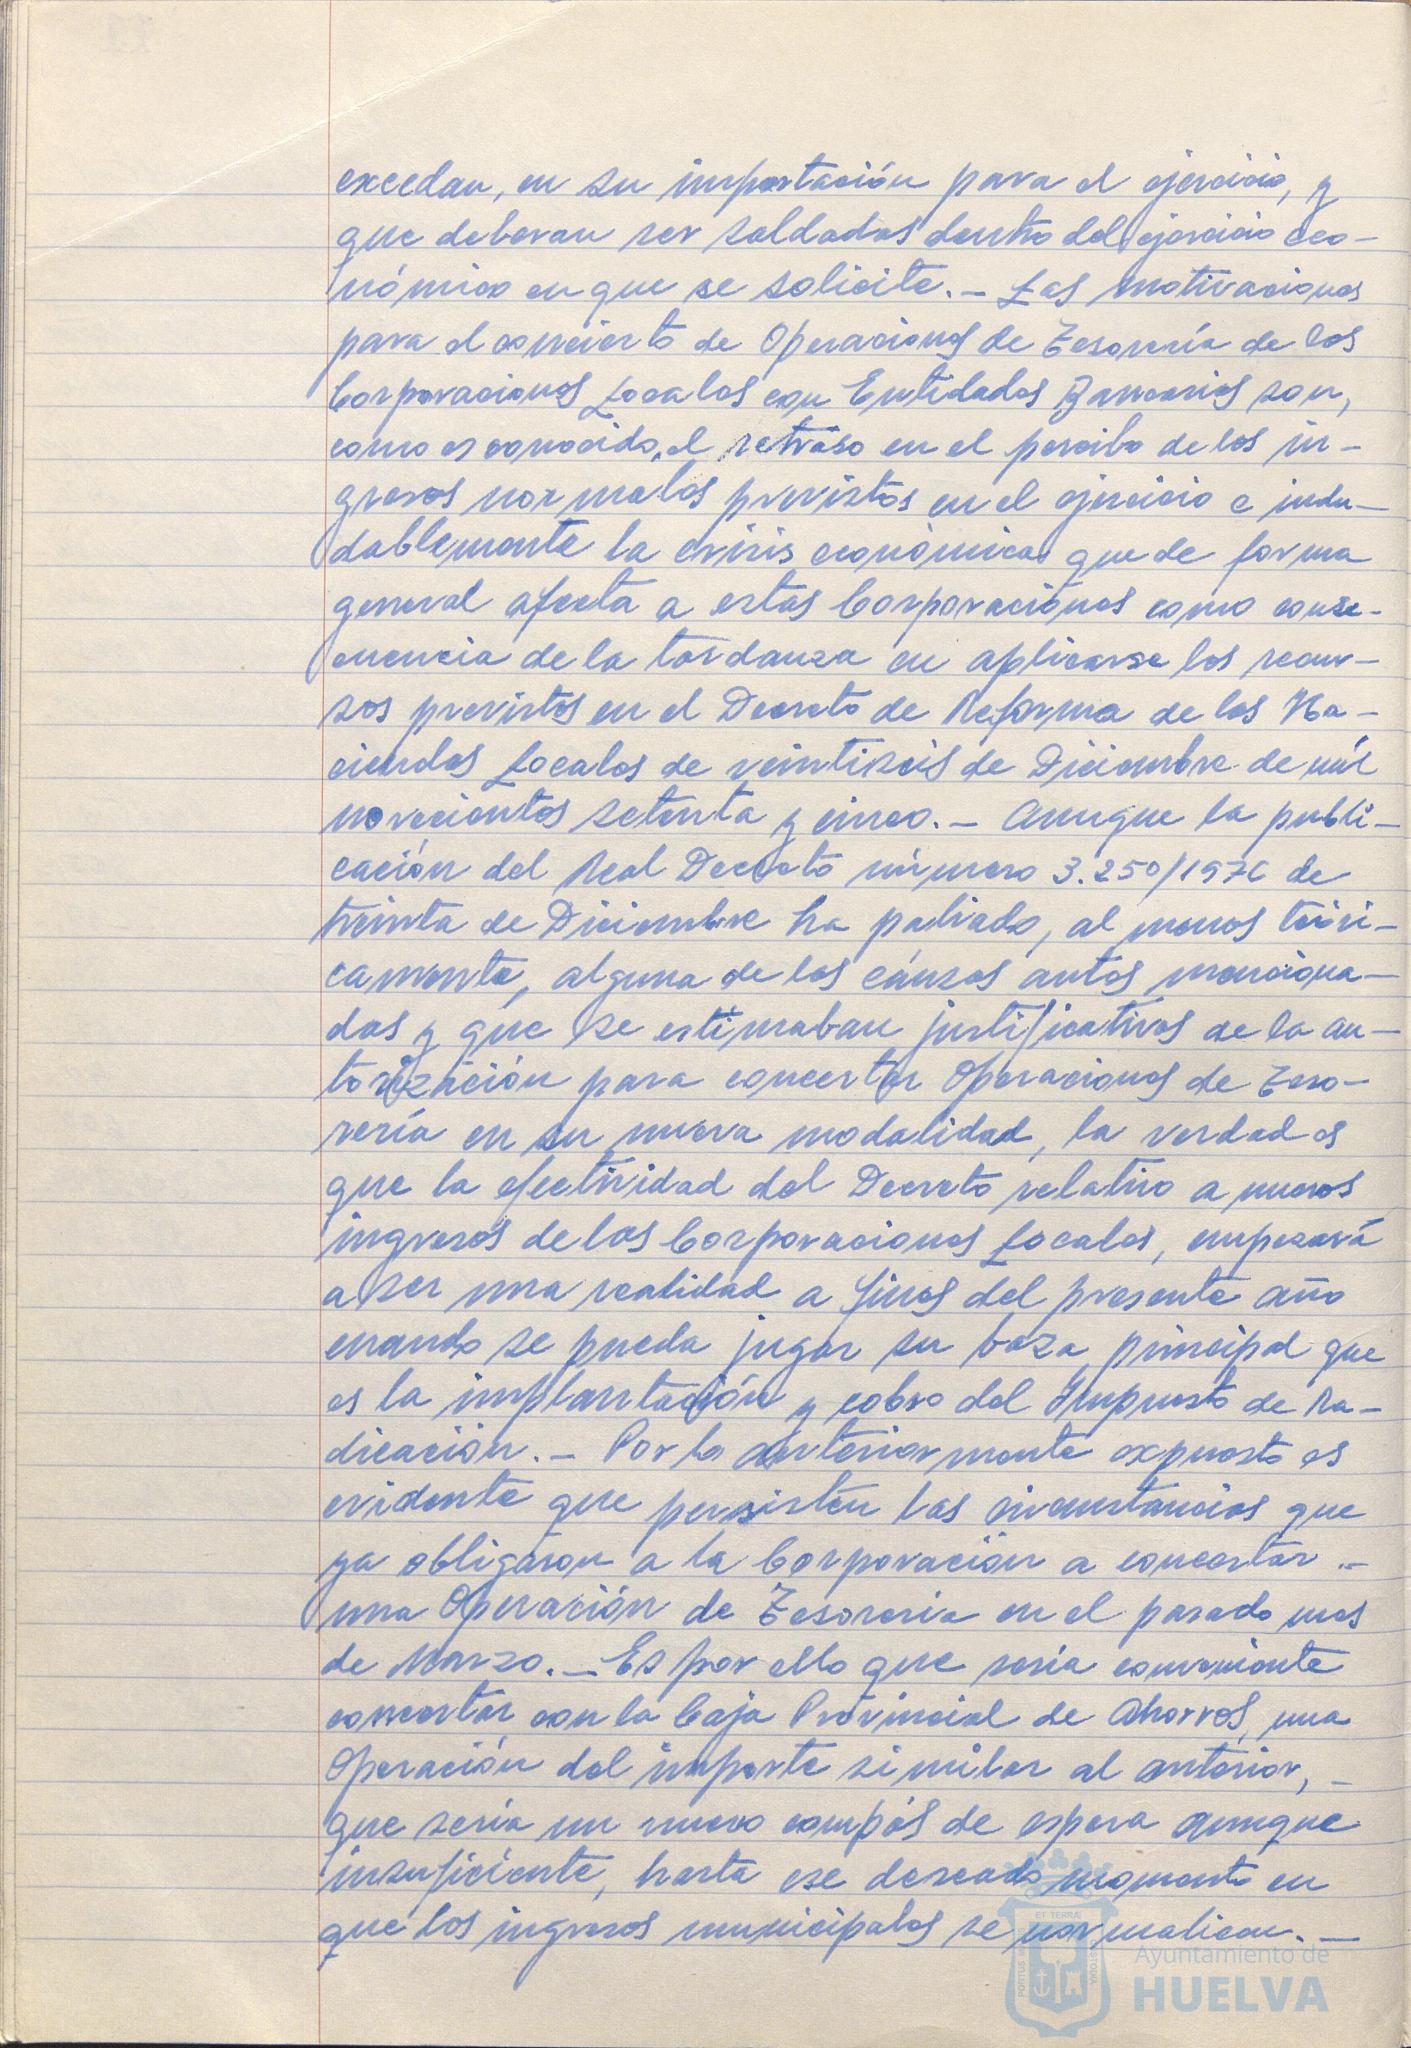 excedan, en su importación para el ejercicio, y
que deberan ser saldadas dentro del ejercicio eco-
nómico en que se solicite.- Las motivaciones
para el concierto de Operaciones de Tesorería de las
Corporaciones Locales con Entidades Bancarias son,
como es conocido, el retraso en el percibo de los in-
gresos normales previstos en el ejercicio e indu-
dablemente la crisis económica que de forma
general afecta a estas Corporaciones como conse-
cuencia de la tardanza en aplicarse los recur-
sos previstos en el Decreto de Reforma de las Ha-
ciendas Locales de veintiseis de Diciembre de mil
novecientos setenta y cinco.- Aunque la publi-
cación del Real Decreto número 3.250/1976 de
treinta de Diciembre ha paliado, al menos teóri-
camente, alguna de las cáusas antes menciona-
das y que se estimaban justificativas de la au-
torización para concertar Operaciones de Teso-
rería en su nueva modalidad, la verdad es
que la efectividad del Decreto relativo a nuevos
ingresos de las Corporaciones Locales, empezará
a ser una realidad a fines del presente año
cuando se pueda jugar su baza principal que
es la implantación y cobro del Impuesto de Ra-
dicación.- Por lo anteriormente expuesto es
evidente que persisten las circunstancias que
ya obligaron a la Corporación a concertar -
una Operación de Tesoreria en el pasado mes
de Marzo.- Es por ello que seria conveniente
concertar con la Caja Provincial de Ahorros, una
Operación del importe similar al anterior, -
que sería un nuevo compás de espera aunque
insuficiente, hasta ese deseado momento en
que los ingresos municipales se normalicen. -
ET TERRÆ
PORTUS
CUSTODIA
Ayuntamiento de
HUELVA